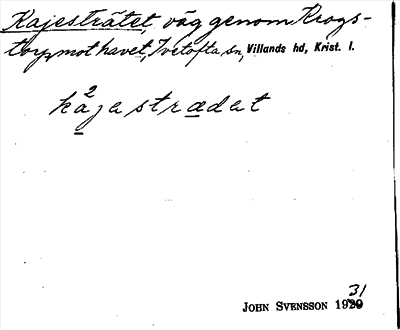 Kajesträtet, väg genom Krogs-
torp mot havet, Ivetofta sn, Villands hd, Krist. l.
2
kajestrædet
JOHN SVENSSON 1920 31